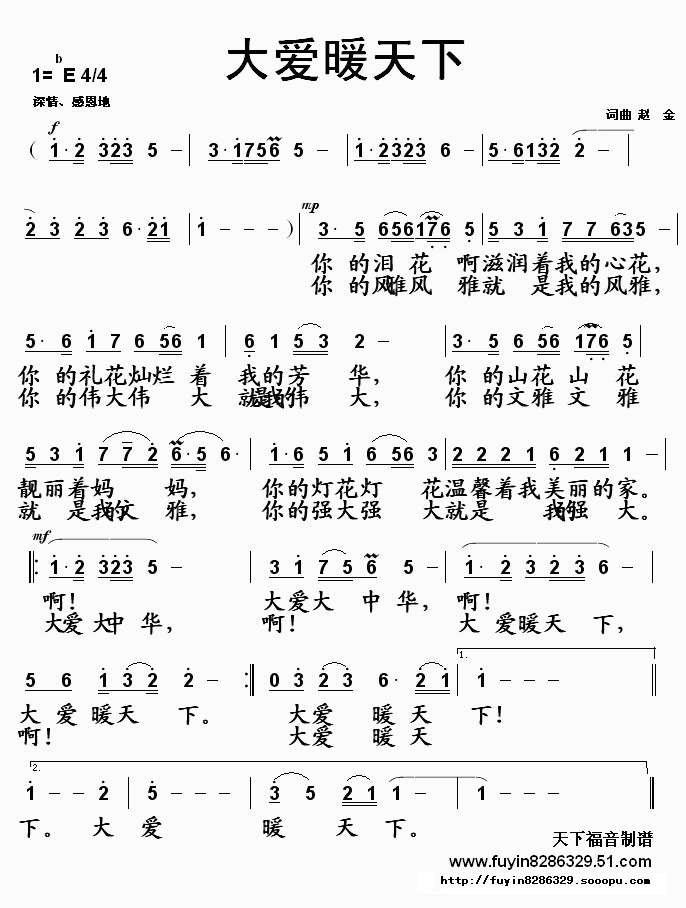 大爱暖天下
1=ᵇE 4/4
深情、感恩地
词曲 赵 金
f
( 1· 2 323 5 — | 3· 1756 5 — | 1· 2323 6 — | 5· 6132 2 — |
2 3 2 3 6· 21 | 1 — — — ) | mp 3· 5 656176 5 | 5 3 1 7 7 635 — |
你 的泪 花 啊滋润着我的心花，
你 的风雅风 雅就 是我的风雅，
5· 6 1 7 6 56 1 | 6 1 5 3 2 — | 3· 5 6 56 176 5 |
你 的礼花灿烂 着 我的芳 华， 你 的山花 山 花
你 的伟大伟 大 就是我的伟 大， 你 的文雅 文 雅
5 3 1 7 7 2 6·5 6· | 1· 6 5 1 6 56 3 | 2 2 2 1 6 2 1 1 — |
靓丽着妈 妈， 你的灯花灯 花温馨着我美丽的家。
就 是我的文 雅， 你的强大强 大就是 我的强 大。
mf
1· 2 323 5 — | 3 1 7 5 6 5 — | 1· 2 3 2 3 6 — |
啊！ 大爱大 中 华， 啊！
大爱大中 华， 啊！ 大 爱暖天 下，
1.
5 6 1 3 2 2 — | 0 3 2 3 6· 2 1 | 1 — — |
大 爱 暖天 下。 大爱 暖 天 下！
啊！ 大爱 暖 天
2.
1 — — 2 | 5 — — — | 3 5 2 1 1 — | 1 — — |
下。 大 爱 暖 天 下。
天下福音制谱
www.fuyin8286329.51.com
http://fuyin8286329.sooopu.com